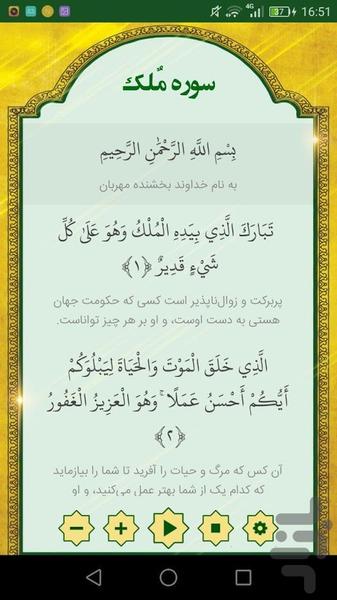 4G 37% 16:51
سوره مُلک
بِسْمِ اللَّهِ الرَّحْمَٰنِ الرَّحِيمِ
به نام خداوند بخشنده مهربان
تَبَارَكَ الَّذِي بِيَدِهِ الْمُلْكُ وَهُوَ عَلَىٰ كُلِّ
شَيْءٍ قَدِيرٌ ﴿١﴾
پربرکت و زوال‌ناپذیر است کسی که حکومت جهان
هستی به دست اوست، و او بر هر چیز تواناست.
الَّذِي خَلَقَ الْمَوْتَ وَالْحَيَاةَ لِيَبْلُوَكُمْ
أَيُّكُمْ أَحْسَنُ عَمَلًا ۚ وَهُوَ الْعَزِيزُ الْغَفُورُ
﴿٢﴾
آن کس که مرگ و حیات را آفرید تا شما را بیازماید
که کدام یک از شما بهتر عمل می‌کنید، و او
بازار